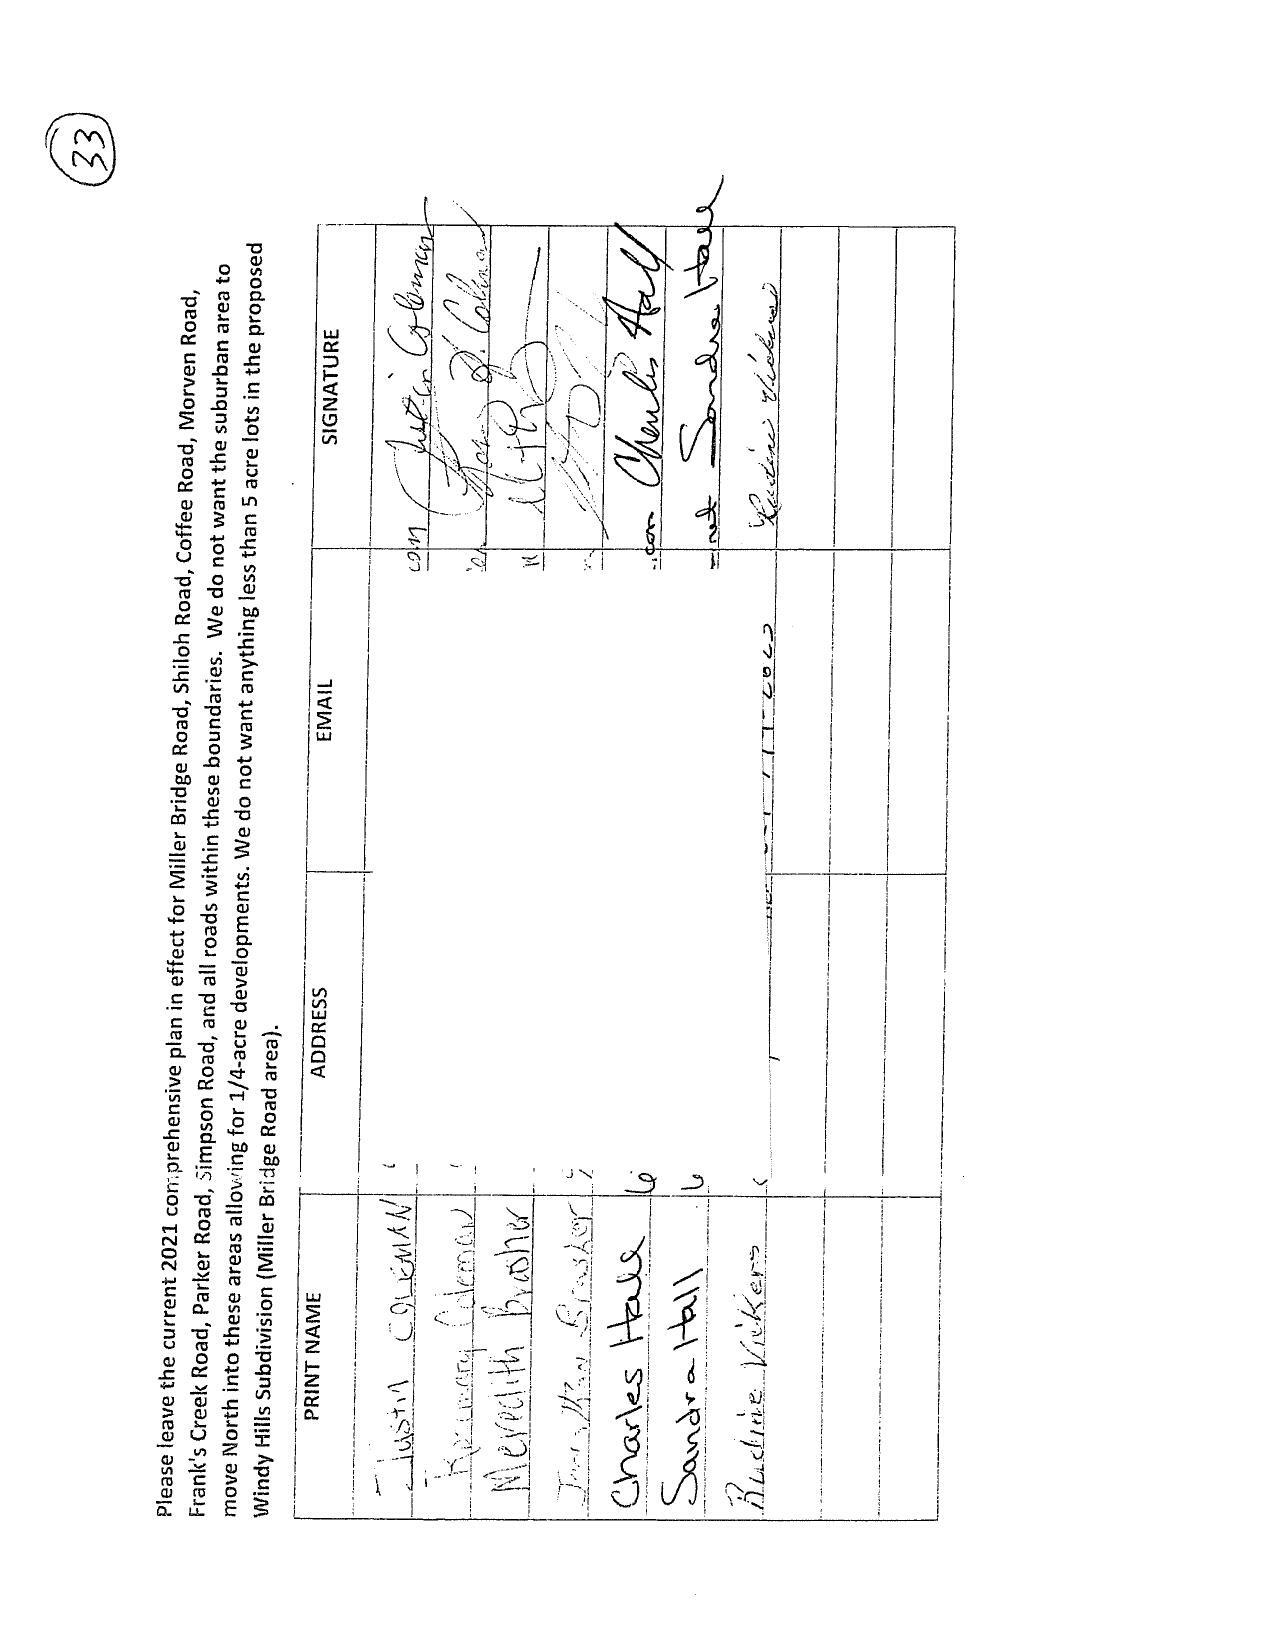 33
Please leave the current 2021 comprehensive plan in effect for Miller Bridge Road, Shiloh Road, Coffee Road, Morven Road,
Frank's Creek Road, Parker Road, Simpson Road, and all roads within these boundaries. We do not want the suburban area to
move North into these areas allowing for 1/4-acre developments. We do not want anything less than 5 acre lots in the proposed
Windy Hills Subdivision (Miller Bridge Road area).
PRINT NAME ADDRESS EMAIL SIGNATURE
Justin COLEMAN com Justin Coleman
Coleman
Meredith Brasher
Brasher
Charles Hall .com Charles Hall
Sandra Hall net Sandra Hall
Vickers Vickers